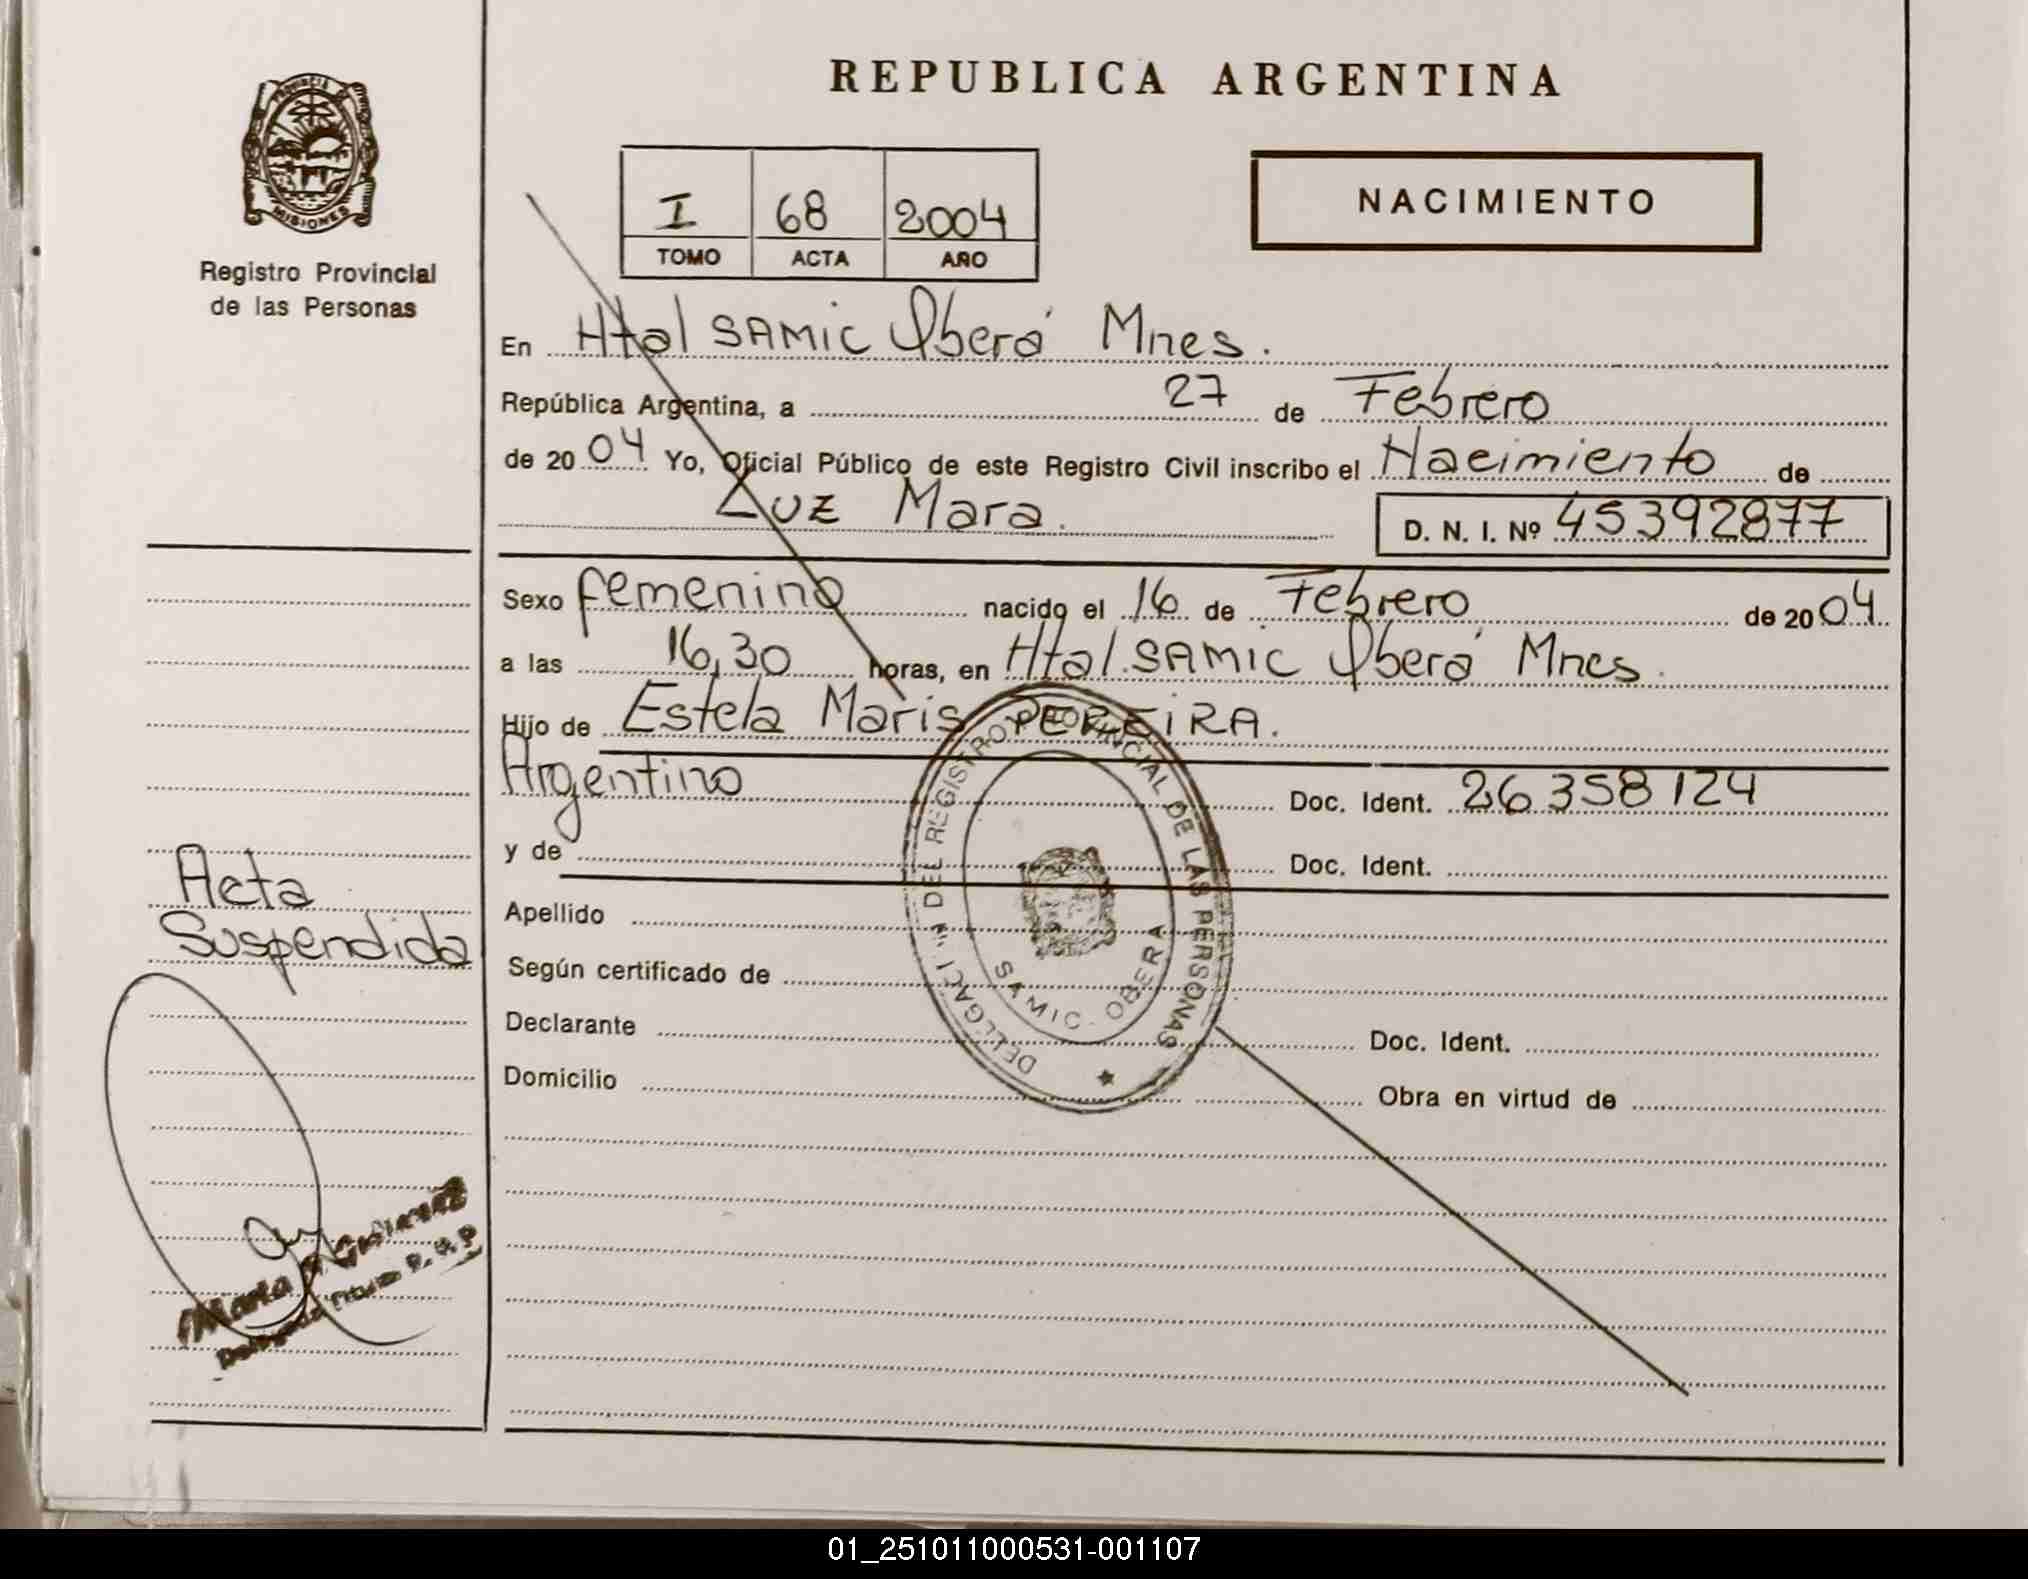 REPUBLICA ARGENTINA
PROVINCIA
MISIONES
Registro Provincial
de las Personas
I 68 2004
TOMO ACTA AÑO
NACIMIENTO
En Htal SAMIC Oberá Mnes.
República Argentina, a 27 de Febrero
de 2004 Yo, Oficial Público de este Registro Civil inscribo el Nacimiento de
Luz Mara. D. N. I. Nº 45392877
Sexo femenino nacido el 16 de Febrero de 2004
a las 16,30 horas, en Htal. SAMIC Oberá Mnes.
Hijo de Estela Maris PEREIRA.
Argentino Doc. Ident. 26358124
y de Doc. Ident.
Apellido
Según certificado de
Declarante Doc. Ident.
Domicilio Obra en virtud de
DEL REGISTRO PROVINCIAL DE LAS PERSONAS
SAMIC - OBERA
Acta
Suspendida
Maria
01_251011000531-001107